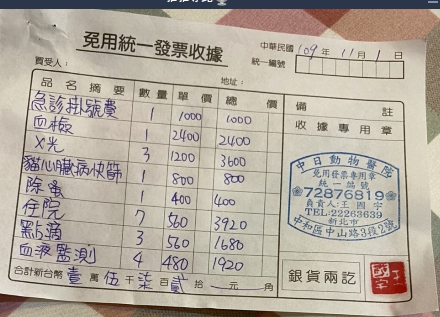 免用統一發票收據
中華民國 109 年 11 月 1 日
統一編號
買受人：
地址：
品名摘要 數量 單價 總價 備註
急診掛號費 1 1000 1000
血檢 1 2400 2400
X光 3 1200 3600
貓心臟病快篩 1 800 800
除蚤 1 400 400
住院 7 560 3920
點滴 3 560 1680
血液監測 4 480 1920
合計新台幣 壹 萬 伍 千 柒 百 貳 拾 元 角
收據專用章
中日動物醫院
免用發票專用章
統一編號
72876819
負責人:王國宇
TEL:22263639
新北市
中和區中山路3段2號
銀貨兩訖